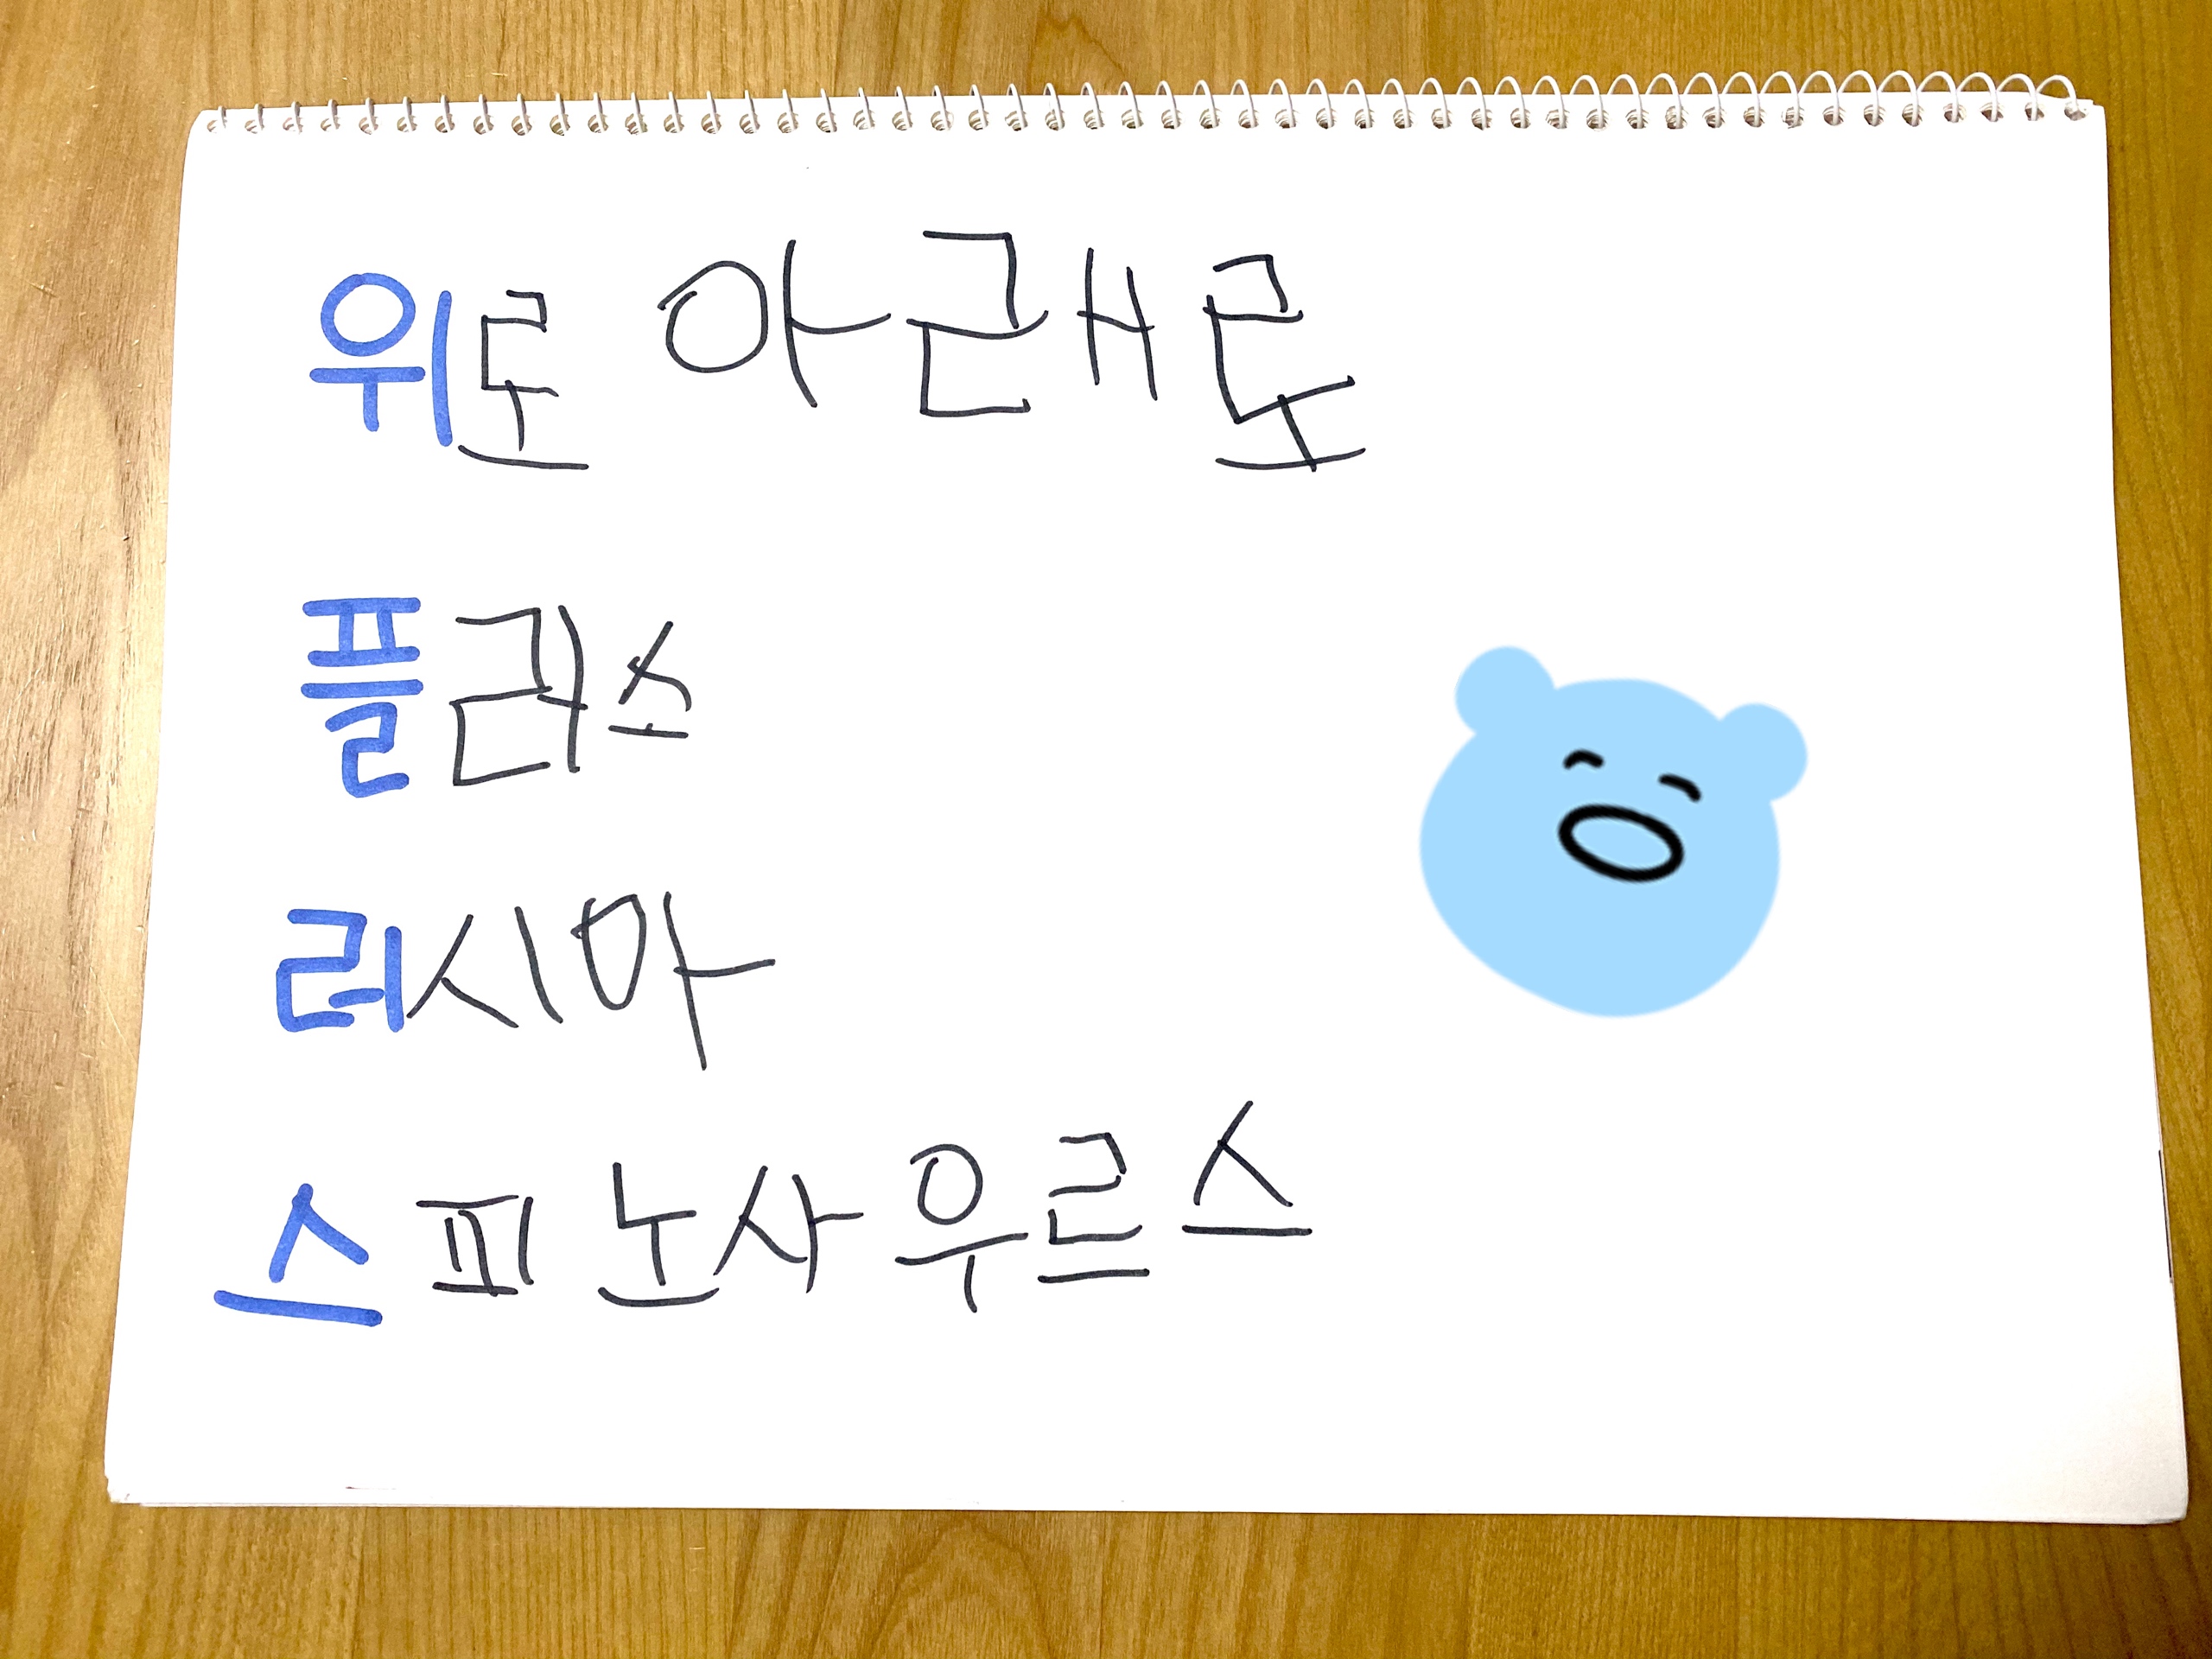 위로 아래로
플리스
러시아
스피노사우르스